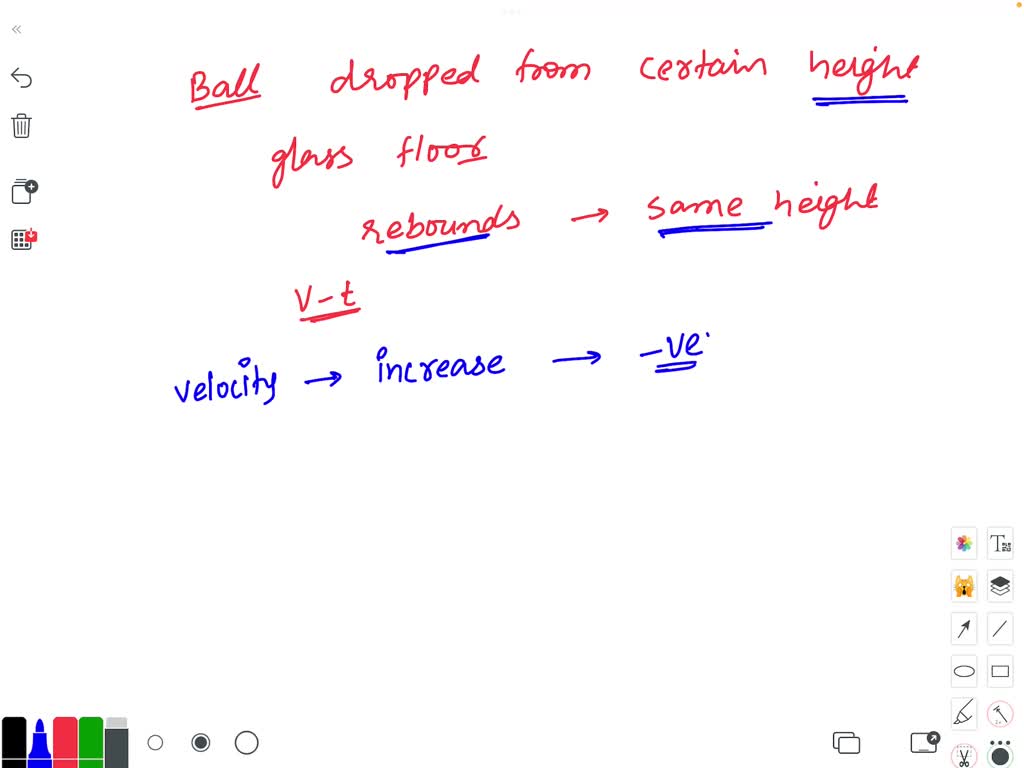 Ball dropped from certain height
glass floor
rebounds → same height
v-t
velocity → increase → -ve.